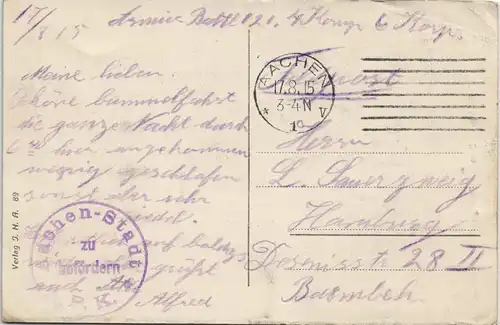 17/8 15
Armier Batl 120. 4 Komp 6 Korp.
Meine lieben.
Schöne bummelfahrt
die ganze Nacht durch
6 hier angekommen
wenig geschlafen
sonst aber sehr
auf baldiges
grüßt
euch Alfred
Aachen-Stadt
zu
befördern
AACHEN
17.8.15
3-4N
* v
Feldpost
Herrn
L. Sauerzweig
Hamburg
Desenisstr 28 II
Barmbek
Verlag J. H. A. 89